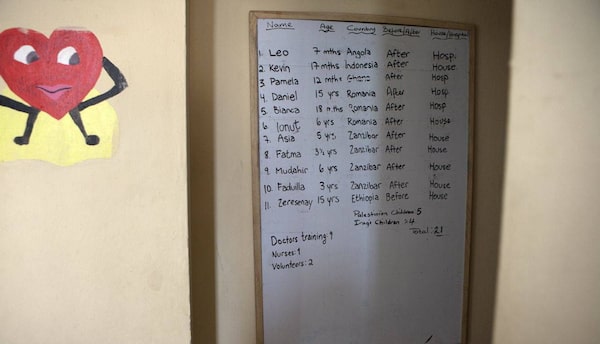 Name Age Country Before/After House/Hospital
1. Leo 7 mths Angola After Hosp
2. Kevin 17 mths Indonesia After House
3 Pamela 12 mths Ghana After Hosp
4. Daniel 15 yrs Romania After Hosp
5. Bianca 18 mths Romania After Hosp
6 Ionuţ 6 yrs Romania After House
7. Asia 5 yrs Zanzibar After House
8. Fatma 3½ yrs Zanzibar After House
9. Mudahir 6 yrs Zanzibar After House
10. Fadulla 3 yrs Zanzibar After House
11. Zeresenay 15 yrs Ethiopia Before House
Palestinian Children 5
Iraqi Children 4
Total: 21
Doctors training: 9
Nurses: 1
Volunteers: 2